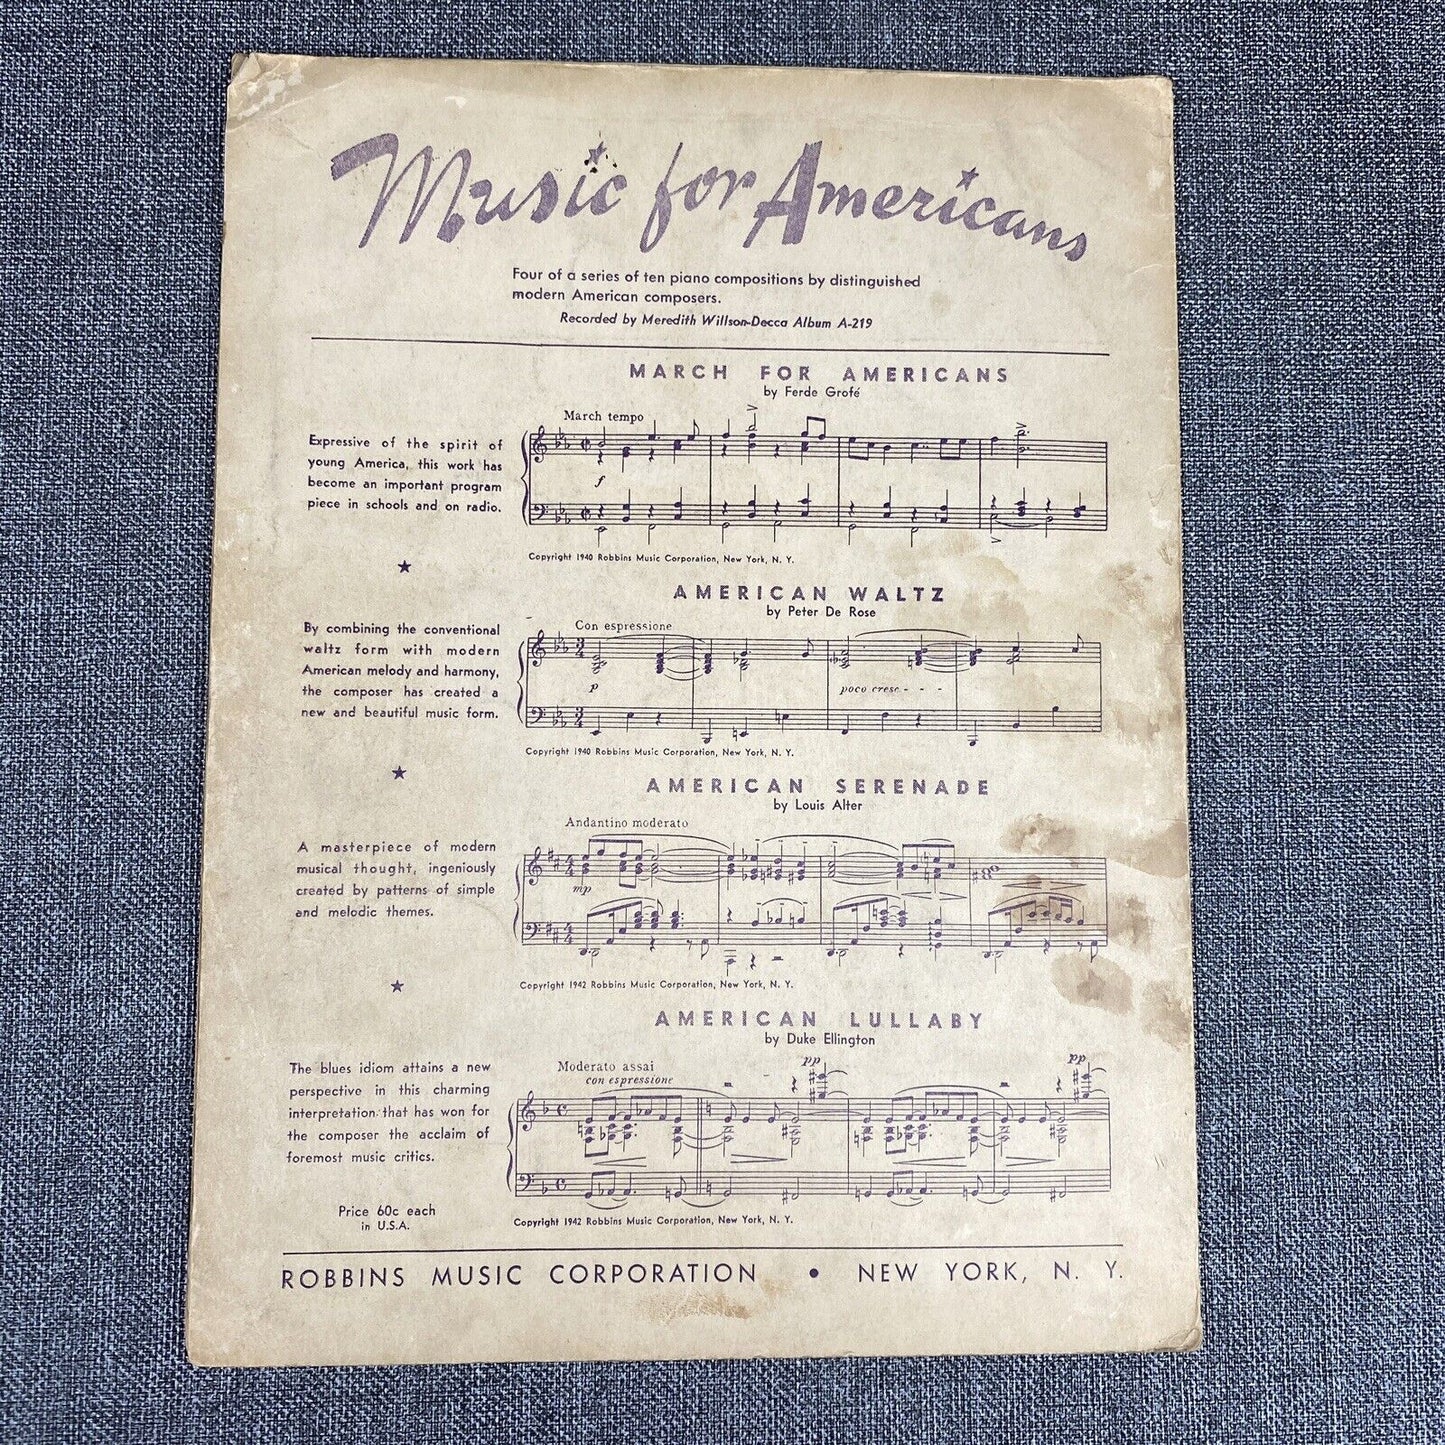 Music for Americans
Four of a series of ten piano compositions by distinguished
modern American composers.
Recorded by Meredith Willson-Decca Album A-219
MARCH FOR AMERICANS
by Ferde Grofé
March tempo
Expressive of the spirit of
young America, this work has
become an important program
piece in schools and on radio.
f
Copyright 1940 Robbins Music Corporation, New York, N. Y.
AMERICAN WALTZ
by Peter De Rose
Con espressione
By combining the conventional
waltz form with modern
American melody and harmony,
the composer has created a
new and beautiful music form.
p
poco cresc - - -
Copyright 1940 Robbins Music Corporation, New York, N. Y.
AMERICAN SERENADE
by Louis Alter
Andantino moderato
A masterpiece of modern
musical thought, ingeniously
created by patterns of simple
and melodic themes.
mp
Copyright 1942 Robbins Music Corporation, New York, N. Y.
AMERICAN LULLABY
by Duke Ellington
Moderato assai
con espressione
pp
pp
The blues idiom attains a new
perspective in this charming
interpretation that has won for
the composer the acclaim of
foremost music critics.
Price 60c each
in U.S.A.
Copyright 1942 Robbins Music Corporation, New York, N. Y.
ROBBINS MUSIC CORPORATION • NEW YORK, N. Y.